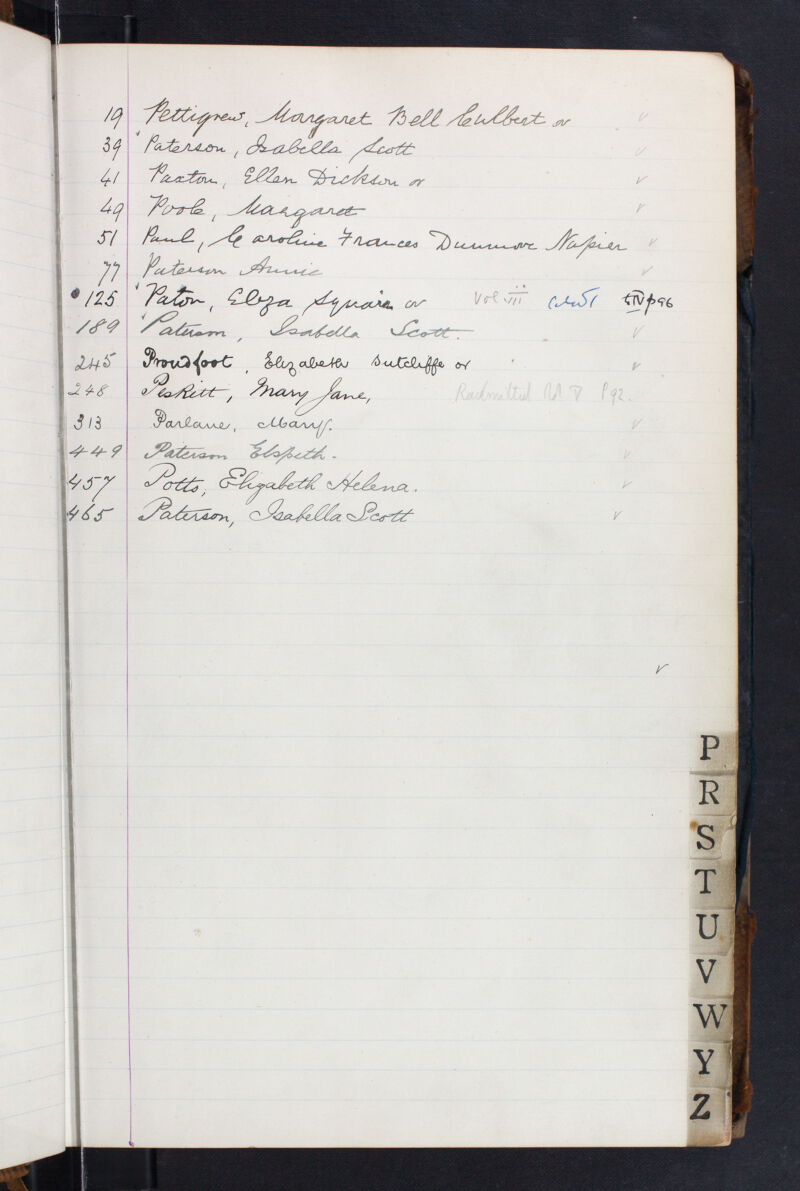 19 Pettigrew, Margaret Bell Culbert or ✓
39 Paterson, Isabella Scott ✓
41 Paxton, Ellen Dickson or ✓
49 Poole, Margaret ✓
51 Paul, Caroline Frances Dunmore Napier ✓
77 Paterson Annie ✓
125 Paton, Eliza Squair or Vol VII p96
189 Paterson, Isabella Scott. ✓
245 Proudfoot, Elizabeth Sutcliffe or ✓
248 Peskett, Mary Jane, Readmitted Vol V P92.
313 Parlane, Mary. ✓
449 Paterson Elspeth. ✓
457 Potts, Elizabeth Helena. ✓
465 Paterson, Isabella Scott ✓
✓
P
R
S
T
U
V
W
Y
Z